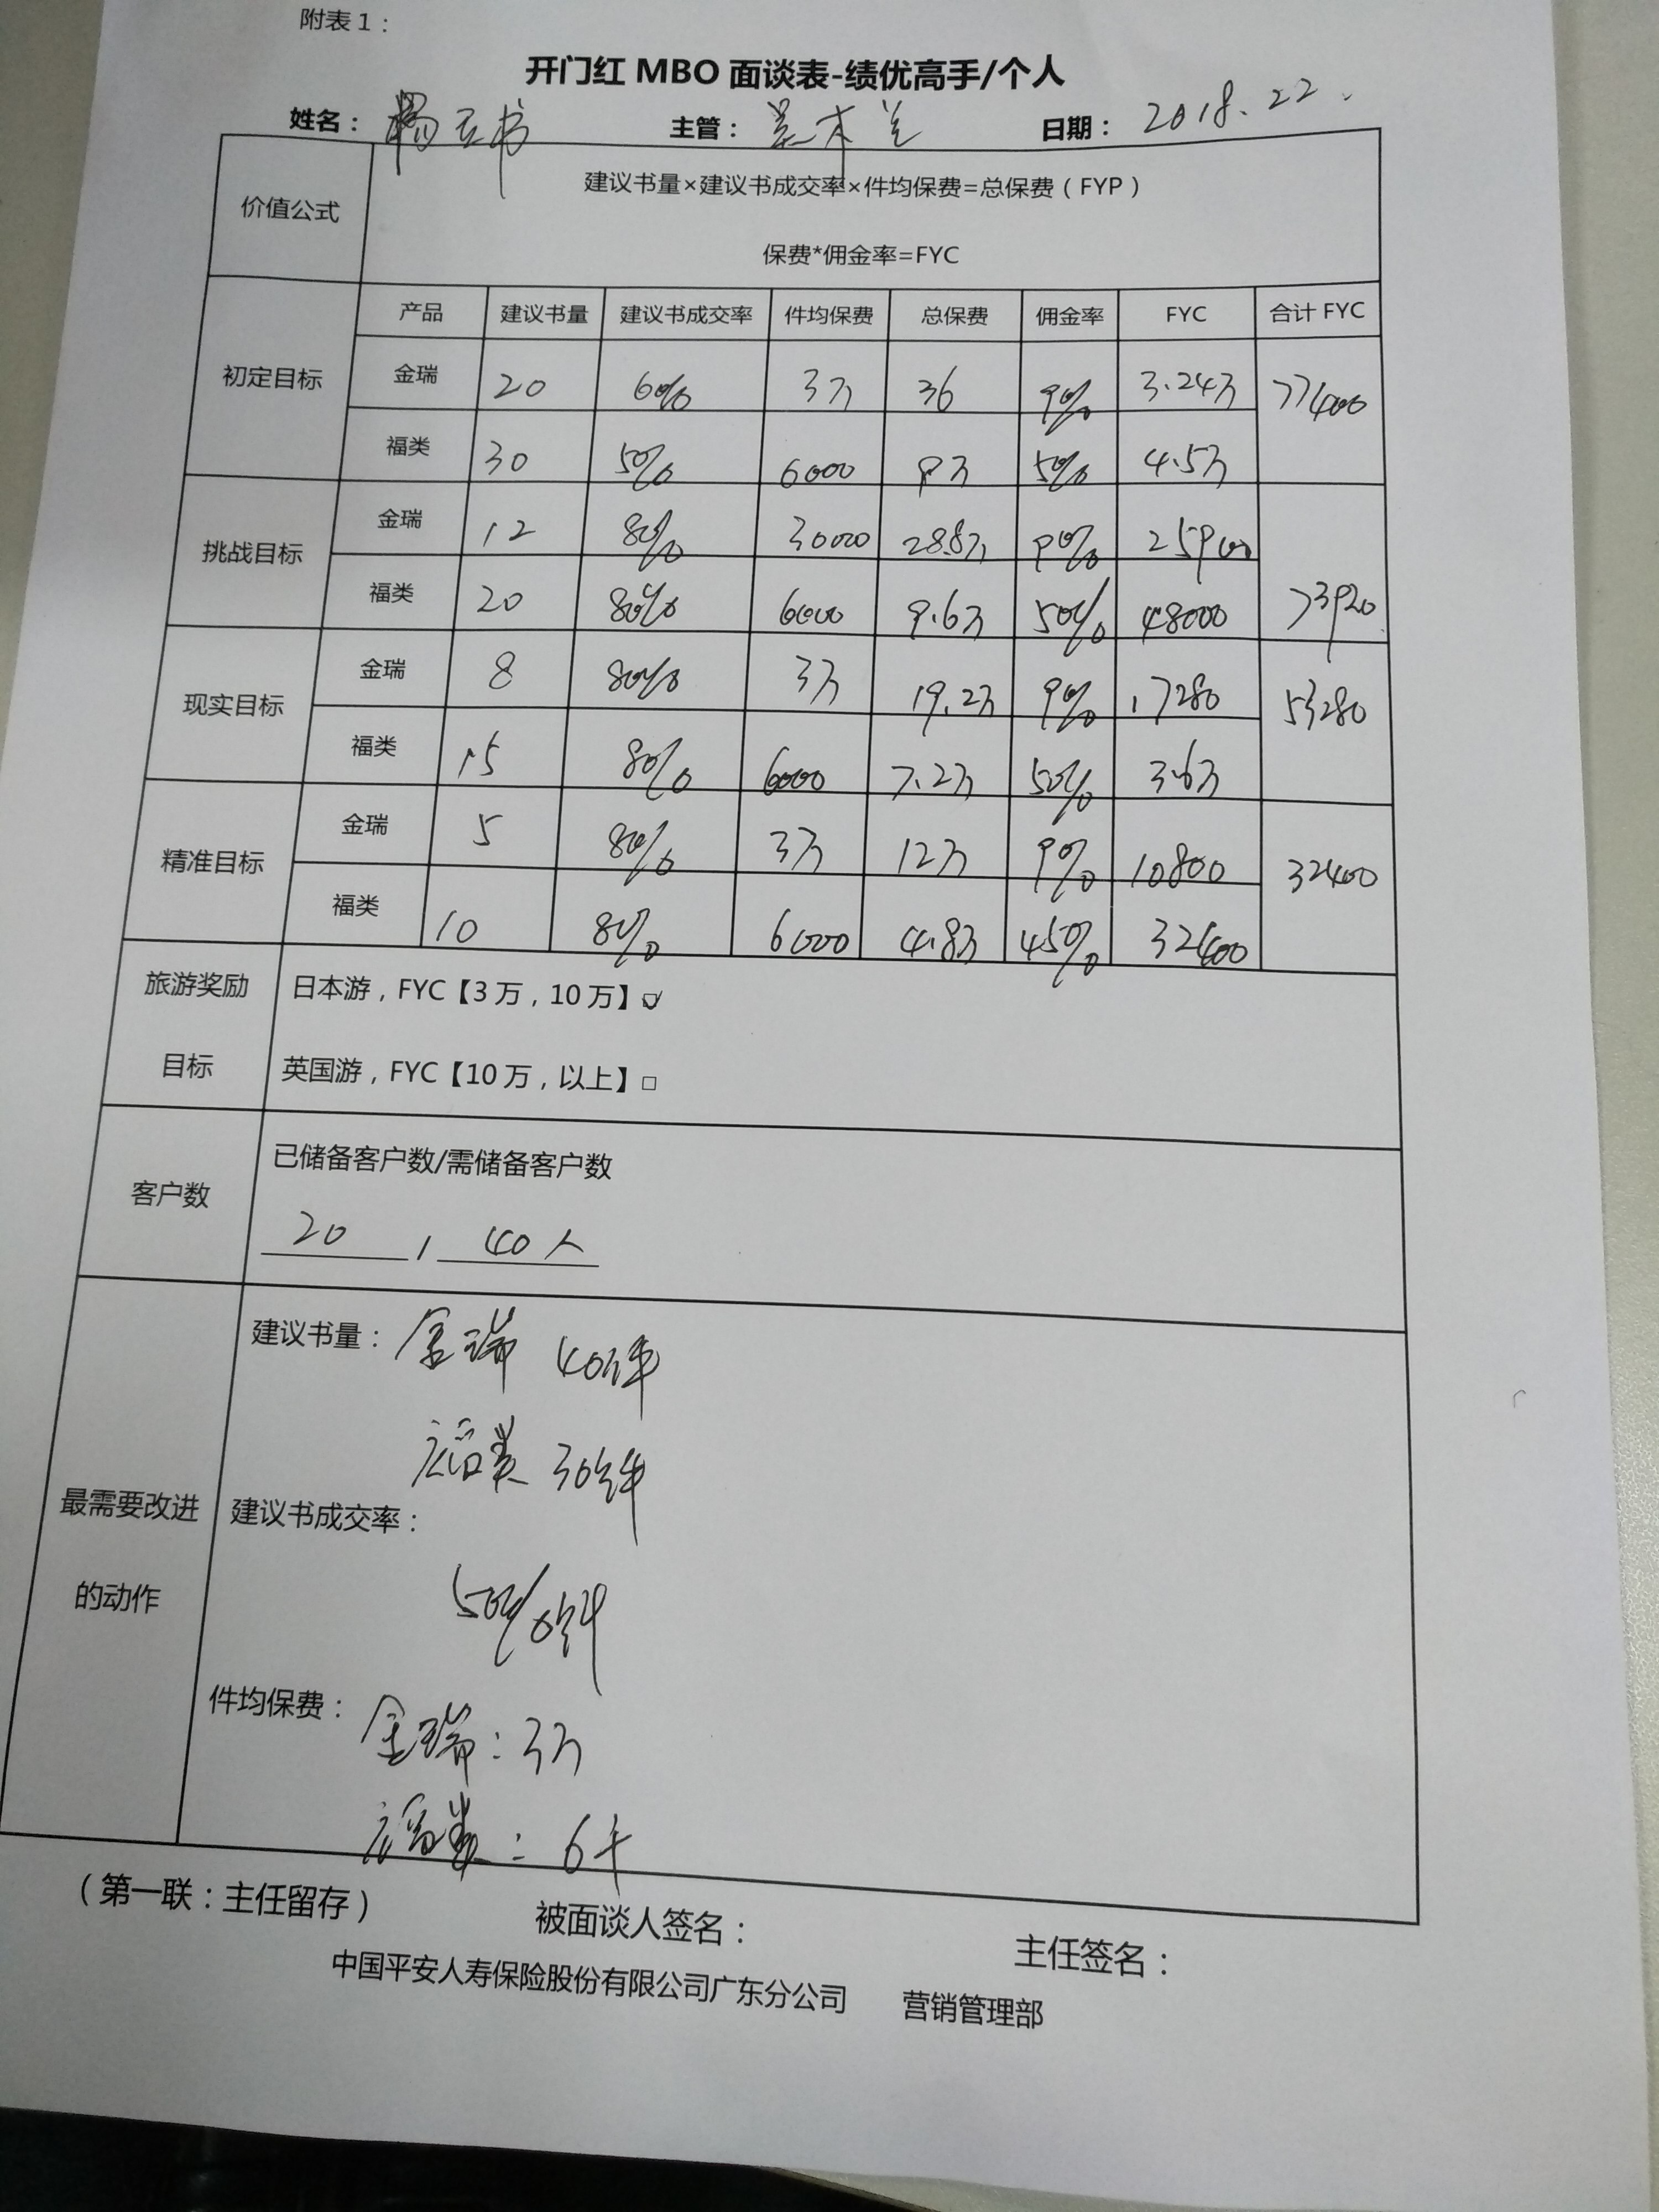 附表1：
开门红 MBO 面谈表-绩优高手/个人
姓名： 主管： 日期：2018.22.
价值公式 建议书量×建议书成交率×件均保费=总保费（FYP）
保费*佣金率=FYC
产品 建议书量 建议书成交率 件均保费 总保费 佣金率 FYC 合计 FYC
初定目标 金瑞 20 60% 3万 36 9% 3.24万 77400
福类 30 50% 6000 9万 50% 4.5万
挑战目标 金瑞 12 80% 30000 28.8万 9% 25900
福类 20 80% 6000 9.6万 50% 48000 73920
现实目标 金瑞 8 80% 3万 19.2万 9% 17280 53280
福类 15 80% 6000 7.2万 50% 3.6万
精准目标 金瑞 5 80% 3万 12万 9% 10800 32400
福类 10 80% 6000 4.8万 45% 32400
旅游奖励目标 日本游，FYC【3万，10万】☑
英国游，FYC【10万，以上】□
客户数 已储备客户数/需储备客户数
20 / 40人
最需要改进的动作 建议书量：金瑞 40件
福类 30件
建议书成交率：
50%
件均保费：金瑞：3万
福类：6千
（第一联：主任留存） 被面谈人签名： 主任签名：
中国平安人寿保险股份有限公司广东分公司 营销管理部